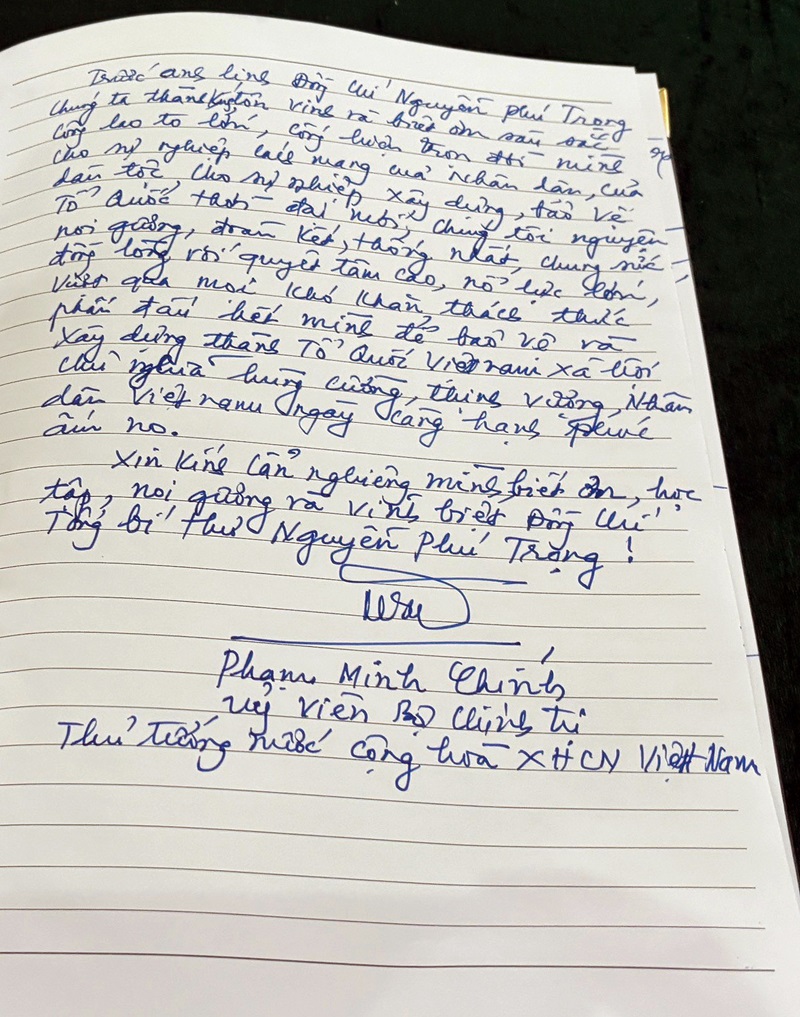 Trước anh linh Đồng chí Nguyễn Phú Trọng
chúng ta thành kính tôn vinh và biết ơn sâu sắc
công lao to lớn, cống hiến trọn đời mình
cho sự nghiệp cách mạng của Nhân dân, của
dân tộc cho sự nghiệp xây dựng, bảo vệ
Tổ Quốc thời đại mới, chúng tôi nguyện
noi gương, đoàn kết, thống nhất, chung sức
đồng lòng với quyết tâm cao, nỗ lực lớn,
vượt qua mọi khó khăn, thách thức
phấn đấu hết mình để bảo vệ và
xây dựng thành Tổ Quốc Việt nam xã hội
chủ nghĩa hùng cường, thịnh vượng, Nhân
dân Việt nam ngày càng hạnh phúc
ấm no.
Xin kính cẩn nghiêng mình biết ơn, học
tập, noi gương và vĩnh biệt Đồng chí
Tổng bí thư Nguyễn Phú Trọng!
Phạm Minh Chính
uỷ viên Bộ chính trị
Thủ tướng nước cộng hoà XHCN Việt Nam